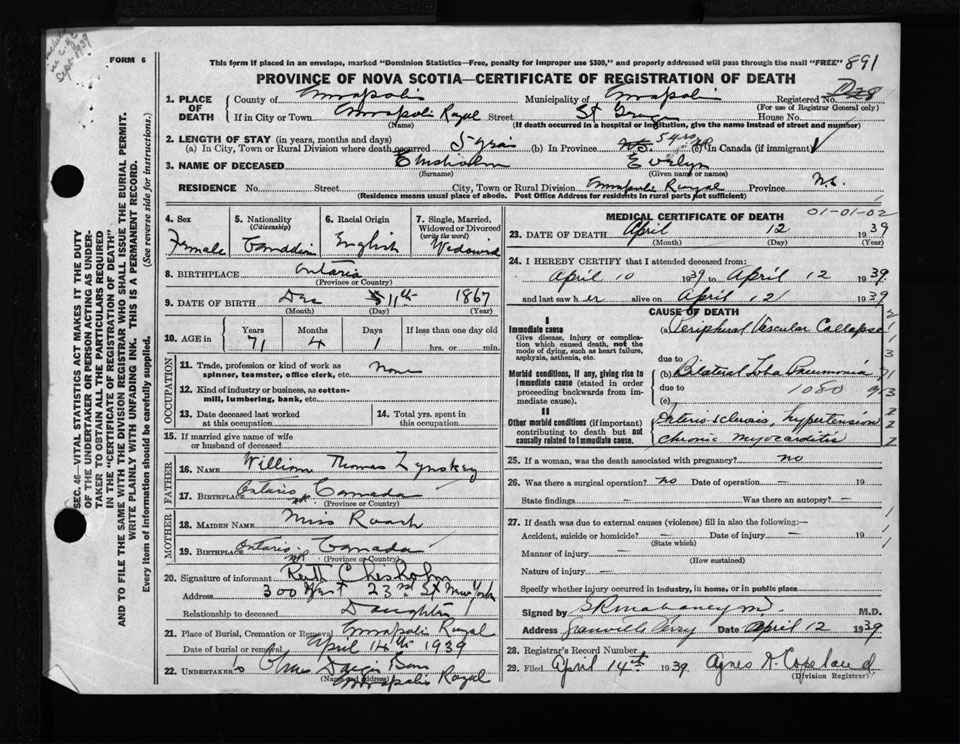 Sept. 1939
FORM 6
This form if placed in an envelope, marked "Dominion Statistics—Free, penalty for improper use $300," and properly addressed will pass through the mail "FREE" 891
PROVINCE OF NOVA SCOTIA—CERTIFICATE OF REGISTRATION OF DEATH
1. PLACE OF DEATH
County of Annapolis Municipality of Annapolis Registered No.
(For use of Registrar General only)
If in City or Town Annapolis Royal Street St George House No.
(Name) (If death occurred in a hospital or institution, give the name instead of street and number)
2. LENGTH OF STAY (in years, months and days)
(a) In City, Town or Rural Division where death occurred 5 yrs (b) In Province 5 yrs (c) In Canada (if immigrant)
3. NAME OF DECEASED Chisholm Evelyn
(Surname) (Given name or names)
RESIDENCE No. Street City, Town or Rural Division Annapolis Royal Province N.S.
(Residence means usual place of abode. Post Office Address for residents in rural parts not sufficient)
4. Sex Female
5. Nationality (Citizenship) Canadian
6. Racial Origin English
7. Single, Married, Widowed or Divorced (write the word) Widowed
8. BIRTHPLACE Ontario
(Province or Country)
9. DATE OF BIRTH Dec 11th 1867
(Month) (Day) (Year)
10. AGE in
Years Months Days If less than one day old
71 4 1 hrs. or min.
OCCUPATION
11. Trade, profession or kind of work as spinner, teamster, office clerk, etc. None
12. Kind of industry or business, as cotton-mill, lumbering, bank, etc.
13. Date deceased last worked at this occupation
14. Total yrs. spent in this occupation
15. If married give name of wife or husband of deceased
FATHER
16. NAME William Thomas Lynskey
17. BIRTHPLACE Ontario Canada
(Province or Country)
MOTHER
18. MAIDEN NAME Miss Roach
19. BIRTHPLACE Ontario Canada
(Province or Country)
20. Signature of informant Ruth Chisholm
Address 300 West 23rd St New York
Relationship to deceased Daughter
21. Place of Burial, Cremation or Removal Annapolis Royal
Date of burial or removal April 14th 1939
22. UNDERTAKER
(Name and address) Annapolis Royal
MEDICAL CERTIFICATE OF DEATH 01-01-02
23. DATE OF DEATH April 12 1939
(Month) (Day) (Year)
24. I HEREBY CERTIFY that I attended deceased from:
April 10 1939 to April 12 1939
and last saw her alive on April 12 1939
CAUSE OF DEATH
I
Immediate cause
Give disease, injury or complication which caused death, not the mode of dying, such as heart failure, asphyxia, asthenia, etc.
(a) Peripheral Vascular Collapse
due to
Morbid conditions, if any, giving rise to immediate cause (stated in order proceeding backwards from immediate cause).
(b) Bilateral Lobar Pneumonia
due to 1080
(c)
II
Other morbid conditions (if important) contributing to death but not causally related to immediate cause.
Arteriosclerosis, hypertension
chronic myocarditis
25. If a woman, was the death associated with pregnancy? no
26. Was there a surgical operation? no Date of operation — 19
State findings — Was there an autopsy? —
27. If death was due to external causes (violence) fill in also the following:—
Accident, suicide or homicide? — Date of injury — 19
(State which)
Manner of injury —
(How sustained)
Nature of injury —
Specify whether injury occurred in industry, in home, or in public place
Signed by S R Mahaney M.D.
Address Granville Ferry Date April 12 1939
28. Registrar's Record Number
29. Filed April 14th 1939. Agnes A Copeland
(Division Registrar)
SEC. 46—VITAL STATISTICS ACT MAKES IT THE DUTY
OF THE UNDERTAKER OR PERSON ACTING AS UNDER-
TAKER TO OBTAIN ALL THE PARTICULARS REQUIRED
IN THE "CERTIFICATE OF REGISTRATION OF DEATH"
AND TO FILE THE SAME WITH THE DIVISION REGISTRAR WHO SHALL ISSUE THE BURIAL PERMIT.
WRITE PLAINLY WITH UNFADING INK. THIS IS A PERMANENT RECORD.
Every item of information should be carefully supplied. (See reverse side for instructions.)